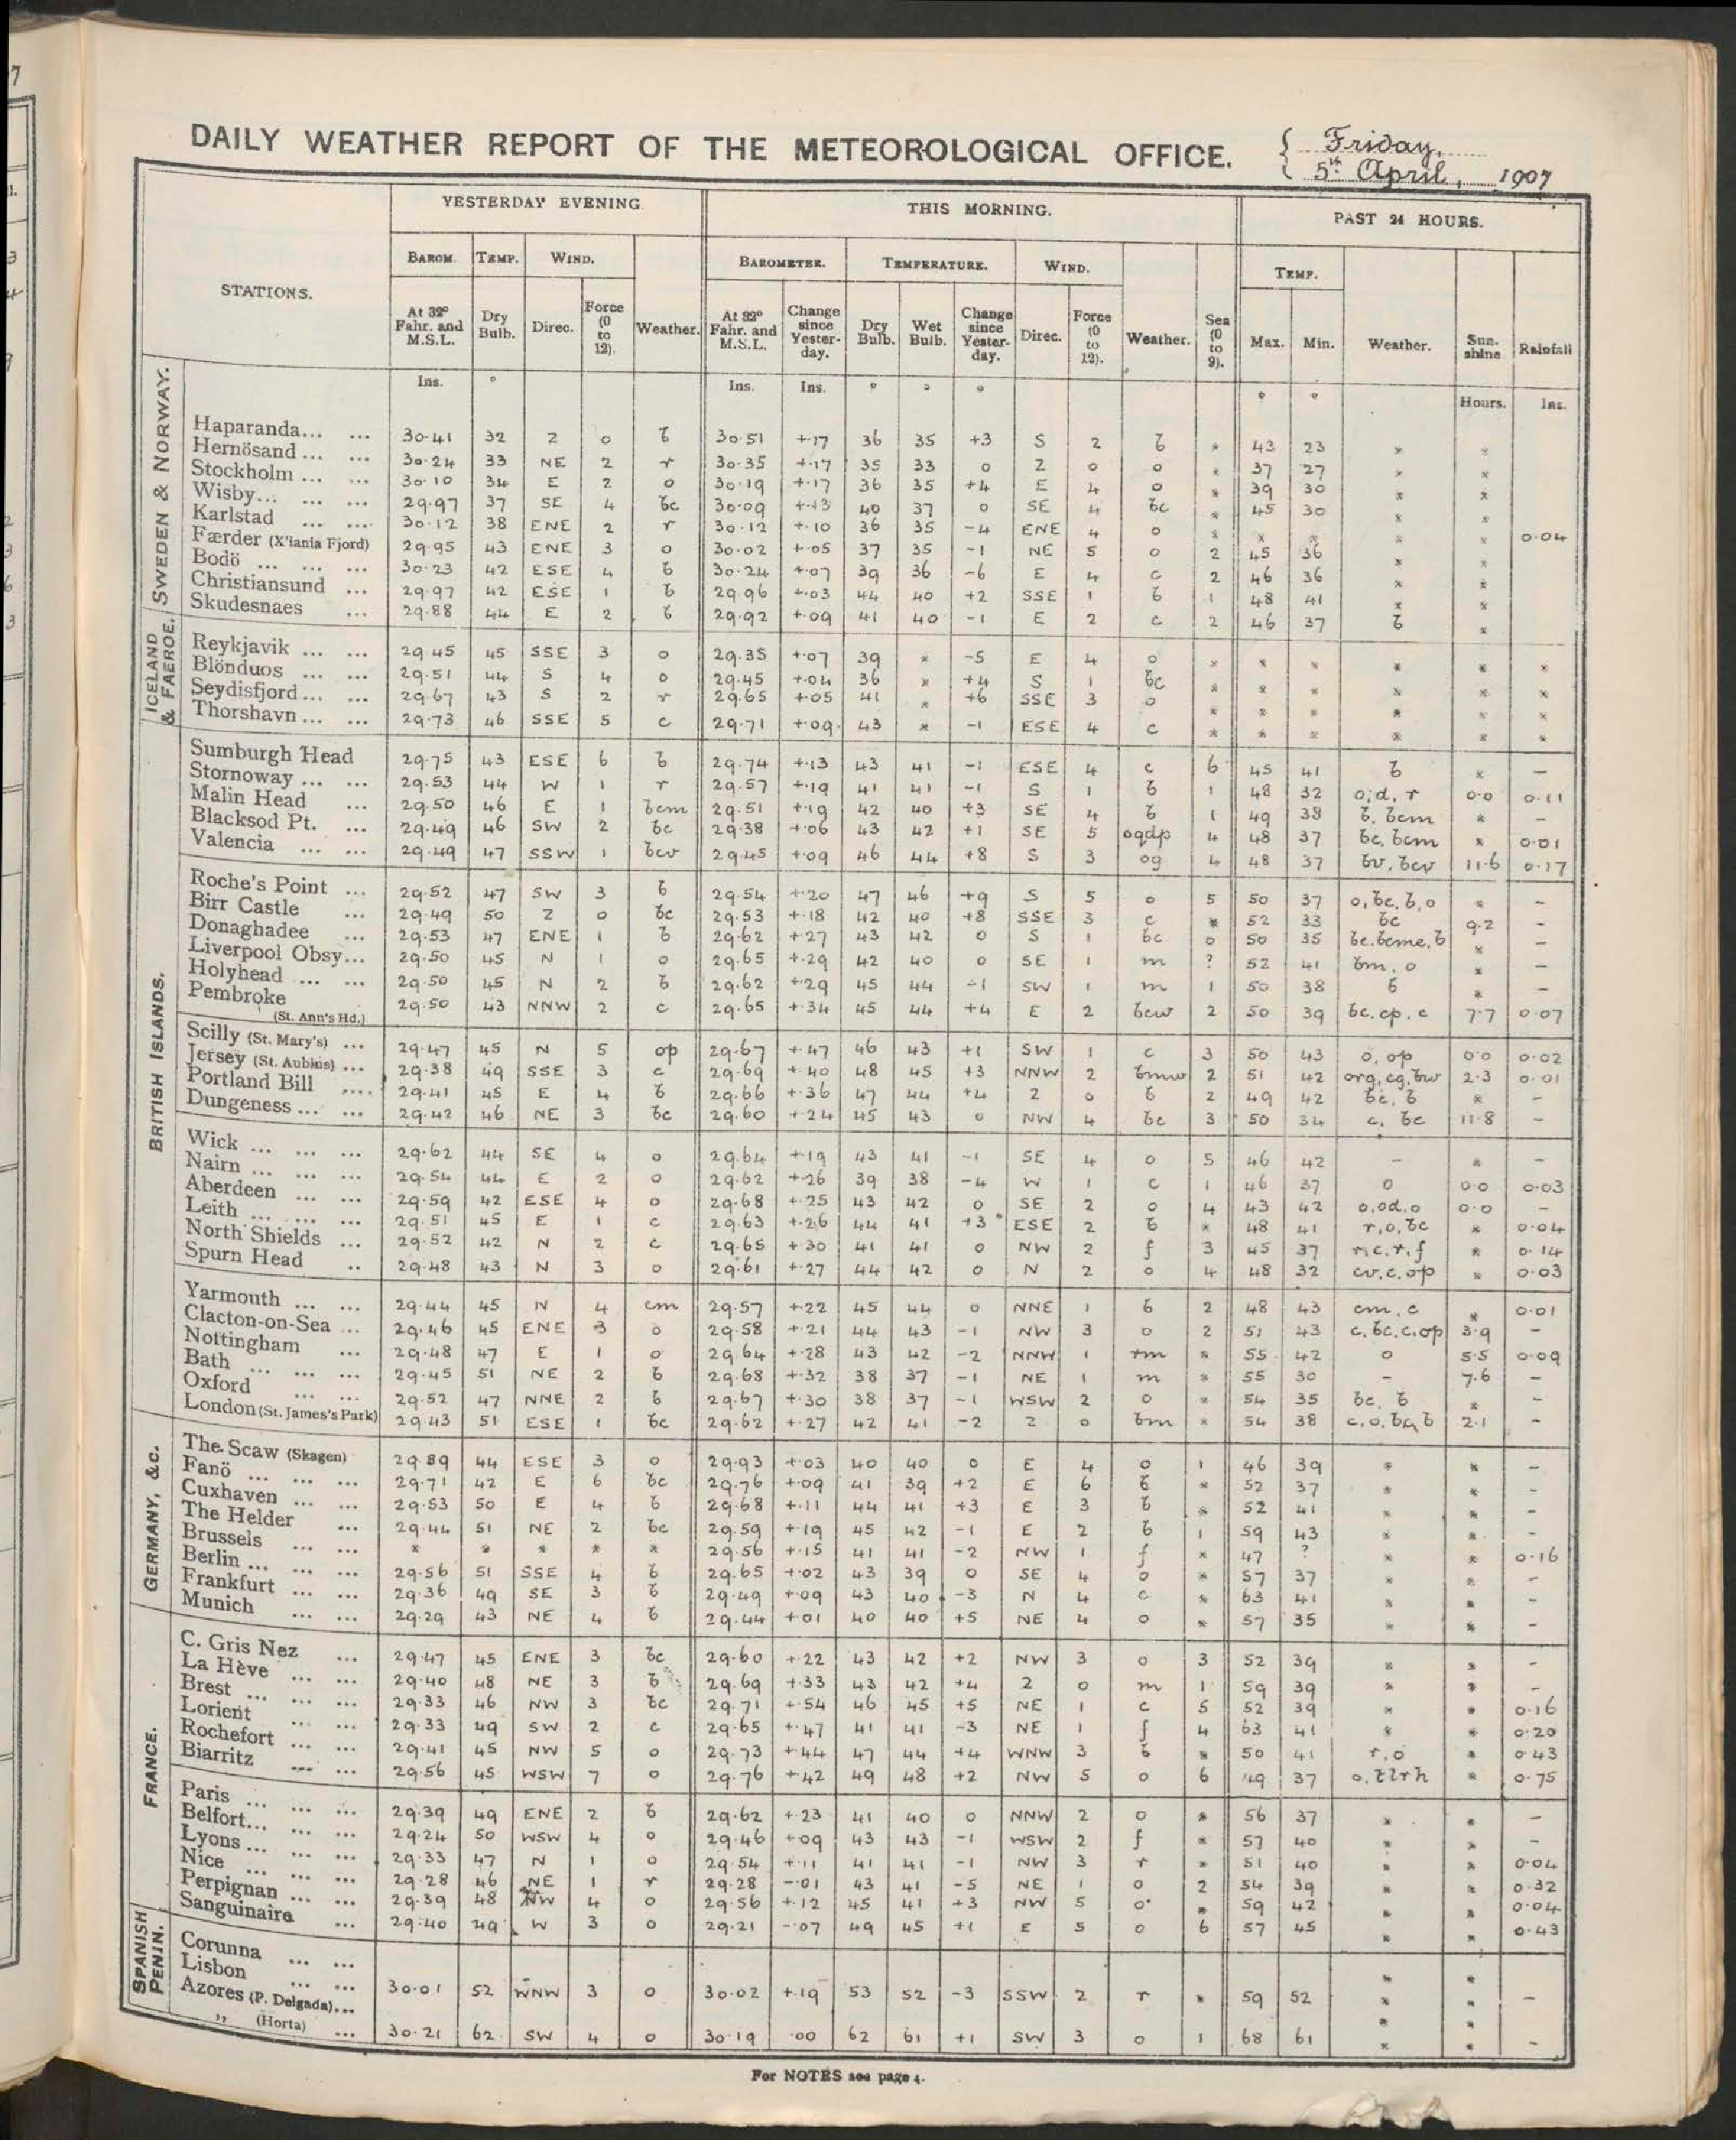 DAILY WEATHER REPORT OF THE METEOROLOGICAL OFFICE. { Friday, 5th April, 1907
YESTERDAY EVENING THIS MORNING. PAST 24 HOURS.
STATIONS. BAROM. TEMP. WIND. BAROMETER. TEMPERATURE. WIND. TEMP.
At 32° Fahr. and M.S.L. Dry Bulb. Direc. Force (0 to 12). Weather. At 32° Fahr. and M.S.L. Change since Yesterday. Dry Bulb. Wet Bulb. Change since Yesterday. Direc. Force (0 to 12). Weather. Sea (0 to 9). Max. Min. Weather. Sunshine Rainfall
Ins. ° Ins. Ins. ° ° ° ° ° Hours. Ins.
SWEDEN & NORWAY.
Haparanda... ... 30.41 32 Z 0 b 30.51 +.17 36 35 +3 S 2 b * 43 23 * *
Hernösand ... ... 30.24 33 NE 2 r 30.35 +.17 35 33 0 Z 0 0 * 37 27 * *
Stockholm ... ... 30.10 34 E 2 o 30.19 +.17 36 35 +4 E 4 o * 39 30 * *
Wisby... ... ... 29.97 37 SE 4 bc 30.09 +.13 40 37 0 SE 4 bc * 45 30 * *
Karlstad ... ... 30.12 38 ENE 2 r 30.12 +.10 36 35 -4 ENE 4 o * * * * * 0.04
Færder (X'iania Fjord) 29.95 43 ENE 3 o 30.02 +.05 37 35 -1 NE 5 o 2 45 36 * *
Bodö ... ... ... 30.23 42 ESE 4 b 30.24 +.07 39 36 -6 E 4 c 2 46 36 * *
Christiansund ... 29.97 42 ESE 1 b 29.96 +.03 44 40 +2 SSE 1 b 1 48 41 * *
Skudesnaes ... 29.88 44 E 2 b 29.92 +.09 41 40 -1 E 2 c 2 46 37 b *
ICELAND & FAEROE.
Reykjavik ... ... 29.45 45 SSE 3 o 29.35 +.07 39 * -5 E 4 o * * * * * *
Blönduos ... ... 29.51 44 S 4 o 29.45 +.04 36 * +4 S 1 bc * * * * * *
Seydisfjord ... ... 29.67 43 S 2 r 29.65 +.05 41 * +6 SSE 3 o * * * * * *
Thorshavn ... ... 29.73 46 SSE 5 c 29.71 +.09 43 * -1 ESE 4 c * * * * * *
BRITISH ISLANDS.
Sumburgh Head 29.75 43 ESE 6 b 29.74 +.13 43 41 -1 ESE 4 c 6 45 41 b * -
Stornoway ... ... 29.53 44 W 1 r 29.57 +.19 41 41 -1 S 1 b 1 48 32 o,d,r 0.0 0.11
Malin Head ... 29.50 46 E 1 bcm 29.51 +.19 42 40 +3 SE 4 b 1 49 38 b, bcm * -
Blacksod Pt. ... 29.49 46 SW 2 bc 29.38 +.06 43 42 +1 SE 5 oqdp 4 48 37 bc, bcm * 0.01
Valencia ... ... 29.49 47 SSW 1 bcv 29.45 +.09 46 44 +8 S 3 og 4 48 37 bv, bcv 11.6 0.17
Roche's Point ... 29.52 47 SW 3 b 29.54 +.20 47 46 +9 S 5 o 5 50 37 o, bc, b, o * -
Birr Castle ... 29.49 50 Z 0 bc 29.53 +.18 42 40 +8 SSE 3 c * 52 33 bc 9.2 -
Donaghadee ... 29.53 47 ENE 1 b 29.62 +.27 43 42 0 S 1 bc 0 50 35 bc.bcme,b * -
Liverpool Obsy... 29.50 45 N 1 o 29.65 +.29 42 40 0 SE 1 m ? 52 41 bm, o * -
Holyhead ... ... 29.50 45 N 2 b 29.62 +.29 45 44 -1 SW 1 m 1 50 38 b * -
Pembroke (St. Ann's Hd.) 29.50 43 NNW 2 c 29.65 +.34 45 44 +4 E 2 bcw 2 50 39 bc, cp, c 7.7 0.07
Scilly (St. Mary's) ... 29.47 45 N 5 op 29.67 +.47 46 43 +1 SW 1 c 3 50 43 o, op 0.0 0.02
Jersey (St. Aubins) ... 29.38 49 SSE 3 c 29.69 +.40 48 45 +3 NNW 2 bmw 2 51 42 org, cg, bw 2.3 0.01
Portland Bill .... 29.41 45 E 4 b 29.66 +.36 47 44 +4 Z 0 b 2 49 42 bc, b * -
Dungeness ... ... 29.42 46 NE 3 bc 29.60 +.24 45 43 0 NW 4 bc 3 50 34 c, bc 11.8 -
Wick ... ... ... 29.62 44 SE 4 o 29.64 +.19 43 41 -1 SE 4 o 5 46 42 - * -
Nairn ... ... ... 29.54 44 E 2 o 29.62 +.26 39 38 -4 W 1 c 1 46 37 o 0.0 0.03
Aberdeen ... ... 29.59 42 ESE 4 o 29.68 +.25 43 42 0 SE 2 o 4 43 42 o,od,o 0.0 -
Leith ... ... ... 29.51 45 E 1 c 29.63 +.26 44 41 +3 ESE 2 b * 48 41 r,o,bc * 0.04
North Shields ... 29.52 42 N 2 c 29.65 +.30 41 41 0 NW 2 f 3 45 37 r,c,r,f * 0.14
Spurn Head .. 29.48 43 N 3 o 29.61 +.27 44 42 0 N 2 o 4 48 32 cv,c,op * 0.03
Yarmouth ... ... 29.44 45 N 4 cm 29.57 +.22 45 44 0 NNE 1 b 2 48 43 cm, c * 0.01
Clacton-on-Sea ... 29.46 45 ENE 3 o 29.58 +.21 44 43 -1 NW 3 o 2 51 43 c, bc, c, op 3.9 -
Nottingham ... 29.48 47 E 1 o 29.64 +.28 43 42 -2 NNW 1 rm * 55 42 o 5.5 0.09
Bath ... ... ... 29.45 51 NE 2 b 29.68 +.32 38 37 -1 NE 1 m * 55 30 - 7.6 -
Oxford ... ... 29.52 47 NNE 2 b 29.67 +.30 38 37 -1 WSW 2 o * 54 35 bc, b * -
London (St. James's Park) 29.43 51 ESE 1 bc 29.62 +.27 42 41 -2 Z 0 bm * 54 38 c, o, bc, b 2.1 -
GERMANY, &c.
The Scaw (Skagen) 29.89 44 ESE 3 o 29.93 +.03 40 40 0 E 4 o 1 46 39 * * -
Fanö ... ... ... 29.71 42 E 6 bc 29.76 +.09 41 39 +2 E 6 b * 52 37 * * -
Cuxhaven ... ... 29.53 50 E 4 b 29.68 +.11 44 41 +3 E 3 b * 52 41 * * -
The Helder ... 29.44 51 NE 2 bc 29.59 +.19 45 42 -1 E 2 b 1 59 43 * * -
Brussels ... ... * * * * * 29.56 +.15 41 41 -2 NW 1 f * 47 ? * * 0.16
Berlin ... ... ... 29.56 51 SSE 4 b 29.65 +.02 43 39 0 SE 4 o * 57 37 * * -
Frankfurt ... ... 29.36 49 SE 3 b 29.49 +.09 43 40 -3 N 4 c * 63 41 * * -
Munich ... ... 29.29 43 NE 4 b 29.44 +.01 40 40 +5 NE 4 o * 57 35 * * -
FRANCE.
C. Gris Nez ... 29.47 45 ENE 3 bc 29.60 +.22 43 42 +2 NW 3 o 3 52 39 * * -
La Hève ... ... 29.40 48 NE 3 b 29.69 +.33 43 42 +4 Z 0 m 1 59 39 * * -
Brest ... ... ... 29.33 46 NW 3 bc 29.71 +.54 46 45 +5 NE 1 c 5 52 39 * * 0.16
Lorient ... ... 29.33 49 SW 2 c 29.65 +.47 41 41 -3 NE 1 f 4 63 41 * * 0.20
Rochefort ... ... 29.41 45 NW 5 o 29.73 +.44 47 44 +4 WNW 3 b * 50 41 r,o * 0.43
Biarritz ... ... 29.56 45 WSW 7 o 29.76 +.42 49 48 +2 NW 5 o 6 49 37 o,tlrh * 0.75
Paris ... ... ... 29.39 49 ENE 2 b 29.62 +.23 41 40 0 NNW 2 o * 56 37 * * -
Belfort... ... ... 29.24 50 WSW 4 o 29.46 +.09 43 43 -1 WSW 2 f * 57 40 * * -
Lyons ... ... ... 29.33 47 N 1 o 29.54 +.11 41 41 -1 NW 3 r * 51 40 * * 0.04
Nice ... ... ... 29.28 46 NE 1 r 29.28 -.01 43 41 -5 NE 1 o 2 54 39 * * 0.32
Perpignan ... ... 29.39 48 NW 4 o 29.56 +.12 45 41 +3 NW 5 o * 59 42 * * 0.04
Sanguinaire ... 29.40 49 W 3 o 29.21 -.07 49 45 +1 E 5 o 6 57 45 * * 0.43
SPANISH PENIN.
Corunna ... ...
Lisbon ... ... 30.01 52 WNW 3 o 30.02 +.19 53 52 -3 SSW 2 r * 59 52 * * -
Azores (P. Delgada)... * *
,, (Horta) ... 30.21 62 SW 4 o 30.19 .00 62 61 +1 SW 3 o 1 68 61 * * -
For NOTES see page 4.